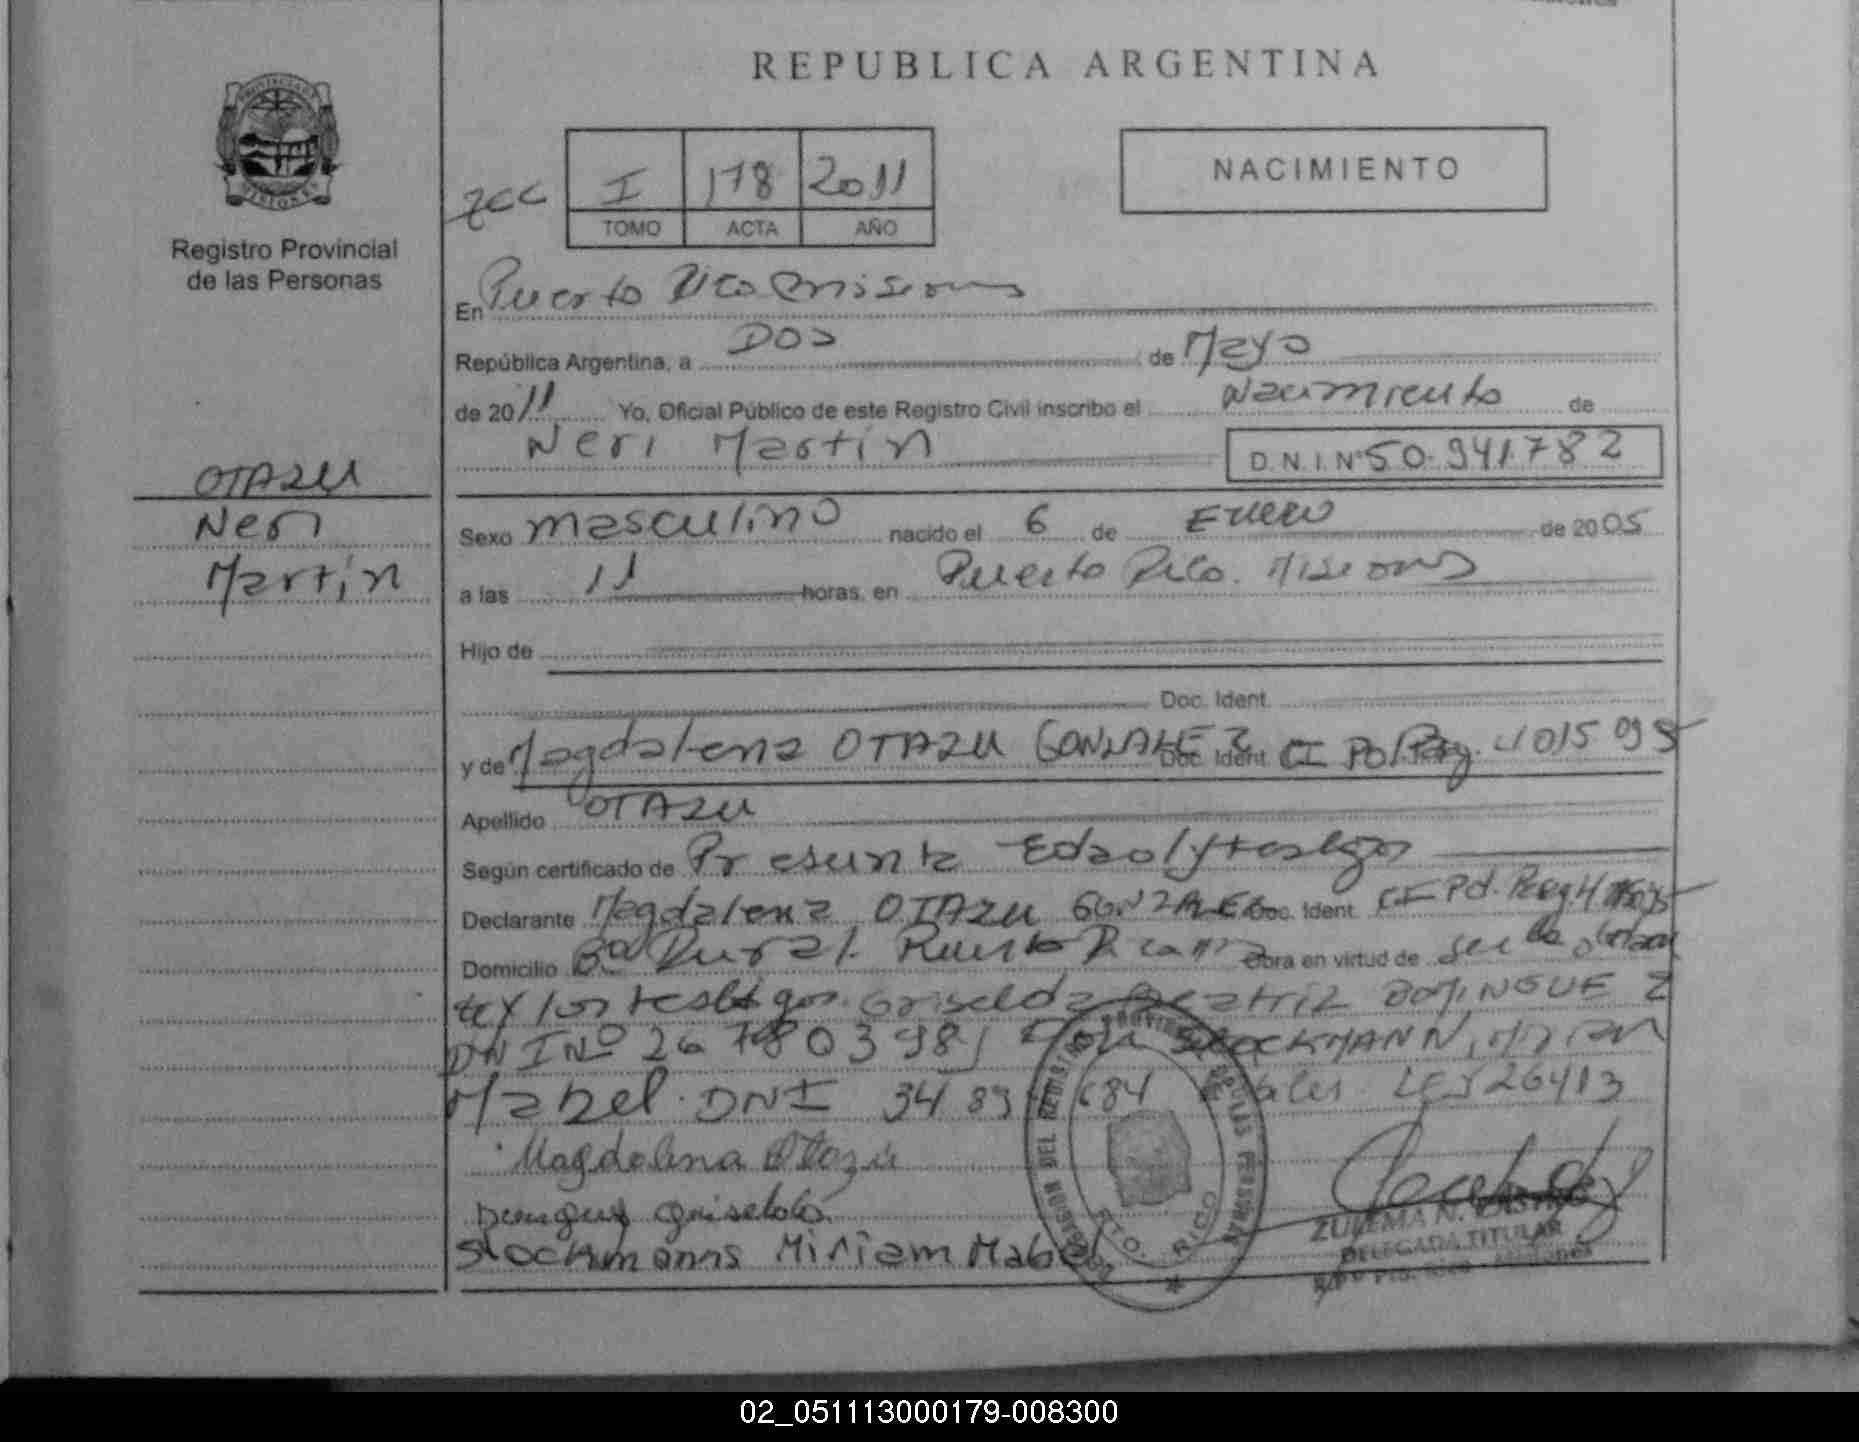 REPUBLICA ARGENTINA
PROVINCIA DE
MISIONES
Registro Provincial
de las Personas
I 178 2011
TOMO ACTA AÑO
NACIMIENTO
En Puerto Rico Misiones
República Argentina, a DOS de Mayo
de 2011 Yo, Oficial Público de este Registro Civil inscribo el Nacimiento de
Neri Martin D.N.I. Nº 50.941.782
OTAZU
Neri
Martin
Sexo masculino nacido el 6 de Enero de 2005
a las 11 horas, en Puerto Rico. Misiones
Hijo de
Doc. Ident.
y de Magdalena OTAZU GONZALEZ Doc. Ident. CI Pol Parg. 4015 095
Apellido OTAZU
Según certificado de Presunta Edad y testigos
Declarante Magdalena OTAZU GONZALEZ Doc. Ident. CI Pol. Parg
Domicilio Bº Rural. Puerto Rico Obra en virtud de ser la
te y los testigos. Griselda Beatriz DOMINGUEZ
DNI Nº 26 780398 STOCKMANN, Miriam
Mabel. DNI 34 89 684 LEJ 26413
Magdalena Otazu
Griselda
Stockmanns Miriam Mabel
DELEGACION DEL REGISTRO PROVINCIAL DE LAS PERSONAS
PTO. RICO
ZULEMA N. CASTRO
DELEGADA TITULAR
02_051113000179-008300